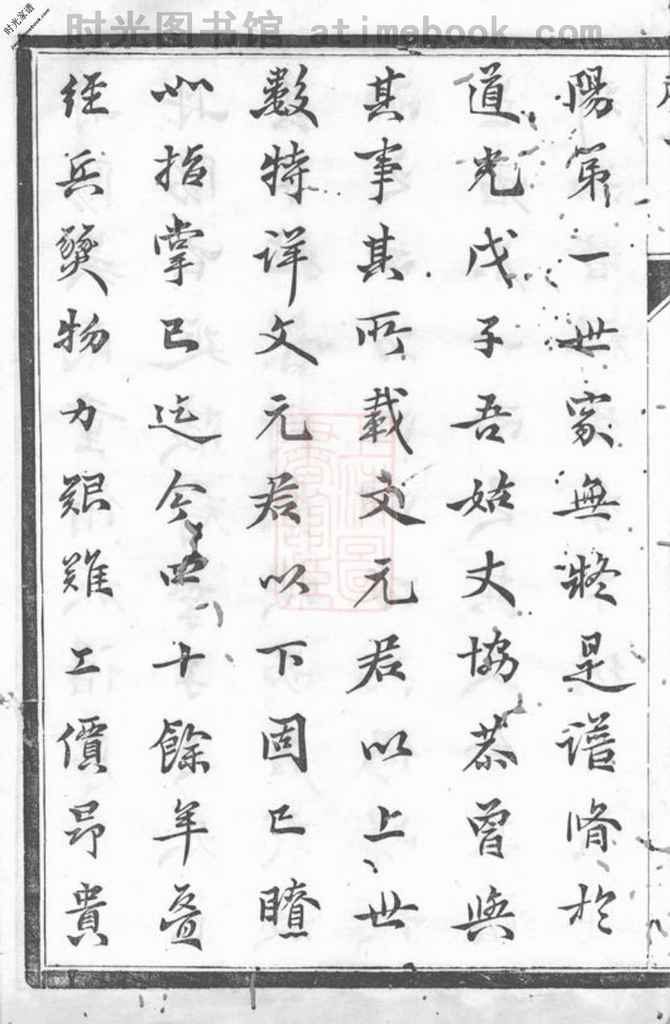 时光图书馆 atimebook.com
时光家谱
陽第一世家無疑是譜脩於
道光戊子吾始丈協恭曾與
其事其所載文元君以上世
數特详文元君以下固已瞭
如指掌已迄今四十餘年叠
經兵燹物力艱難工價昂貴